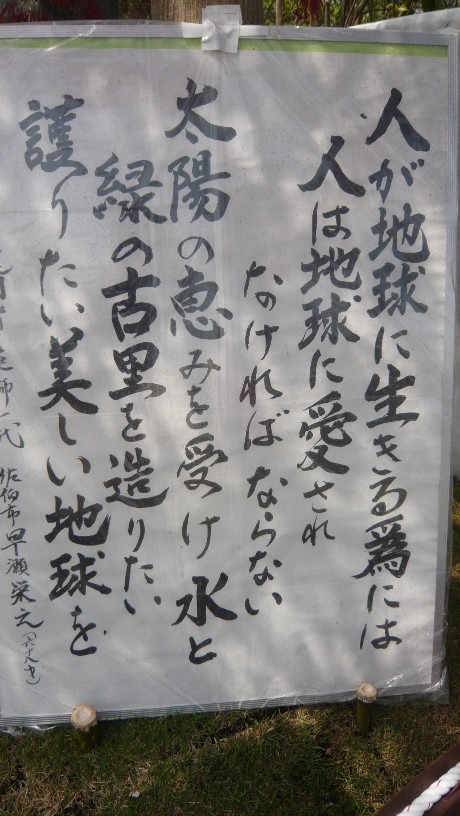 人が地球に生きる為には
人は地球に愛され
なければならない
太陽の恵みを受け水と
緑の古里を造りたい
護りたい美しい地球を
師一代 佐伯市早瀬栄元